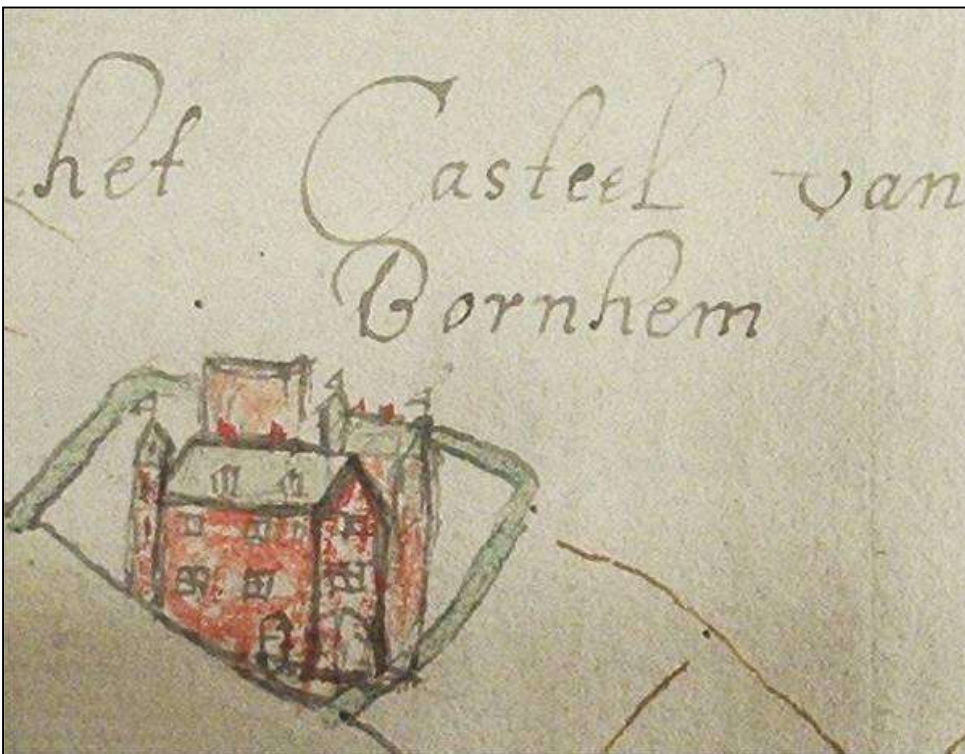 het Casteel van
Bornhem